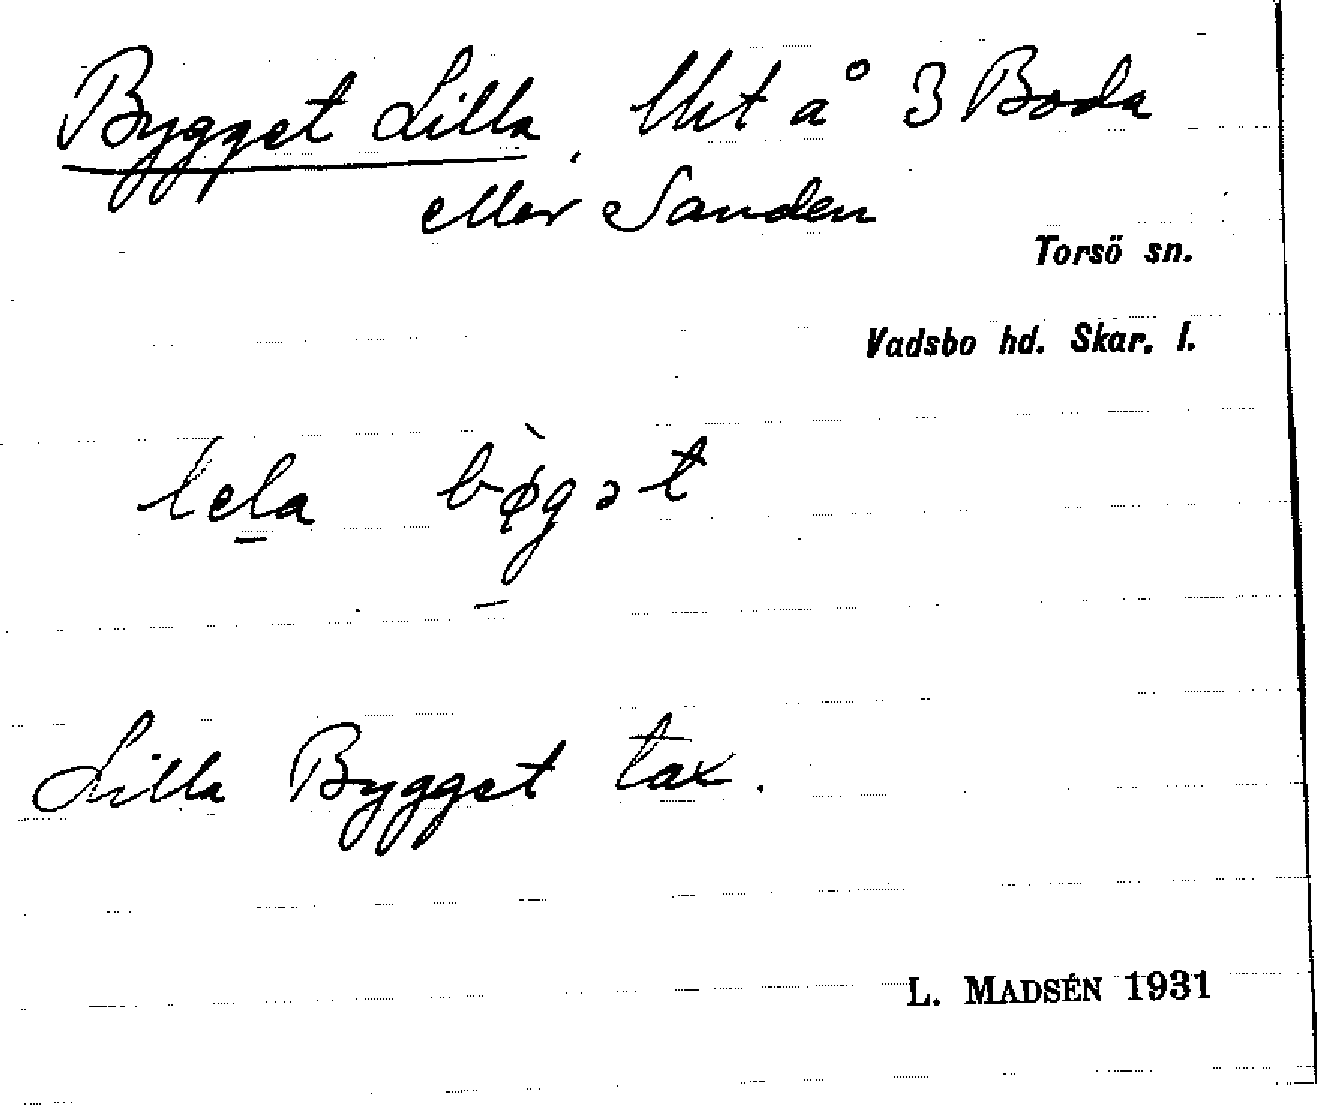 Bygget Lilla, lht å 3 Boda
eller Sanden
Torsö sn.
Vadsbo hd. Skar. l.
lela bø̀gət
Lilla Bygget tax.
L. MADSÉN 1931